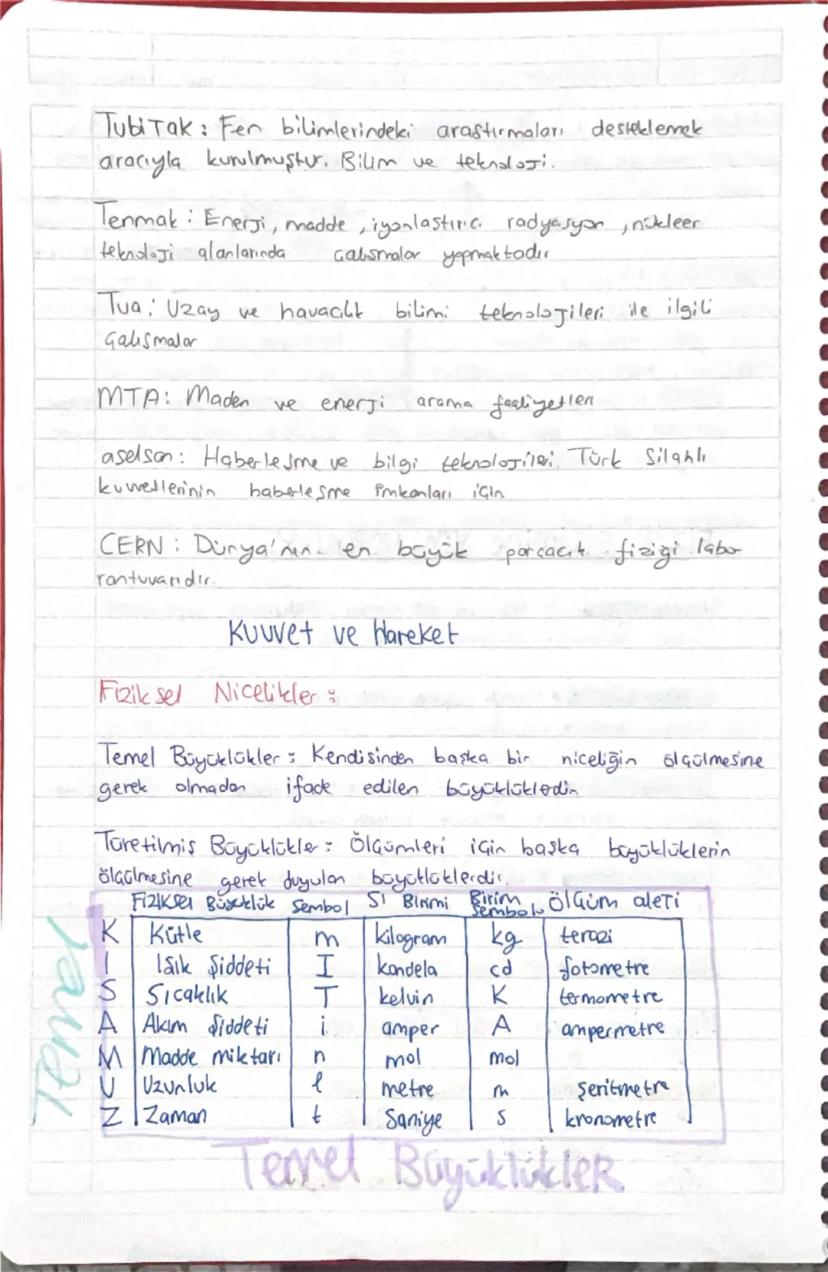 TubiTak : Fen bilimlerindeki araştırmaları desteklemek
aracıyla kurulmuştur. Bilim ve teknoloji.
Tenmak : Enerji, madde, iyonlaştırıcı radyasyon, nükleer
teknoloji alanlarında çalışmalar yapmaktadır
Tua : Uzay ve havacılık bilimi teknolojileri ile ilgili
Çalışmalar
MTA : Maden ve enerji arama faaliyetleri
aselsan : Haberleşme ve bilgi teknolojileri. Türk Silahlı
kuvvetlerinin haberleşme imkanları için
CERN : Dünya'nın en büyük parçacık fiziği labor
rontuvarıdır.
Kuvvet ve Hareket
Fiziksel Nicelikler :
Temel Büyüklükler : Kendisinden başka bir niceliğin ölçülmesine
gerek olmadan ifade edilen büyüklüklerdir
Türetilmiş Büyüklükler : Ölçümleri için başka büyüklüklerin
ölçülmesine gerek duyulan büyüklüklerdir.
Fiziksel Büyüklük Sembol SI Birimi Birim Sembolü Ölçüm aleti
K Kütle m kilogram kg terazi
I Işık Şiddeti I kandela cd fotometre
S Sıcaklık T kelvin K termometre
A Akım Şiddeti i amper A ampermetre
M Madde miktarı n mol mol
U Uzunluk l metre m şeritmetre
Z Zaman t Saniye s kronometre
Temel
Temel Büyüklükler